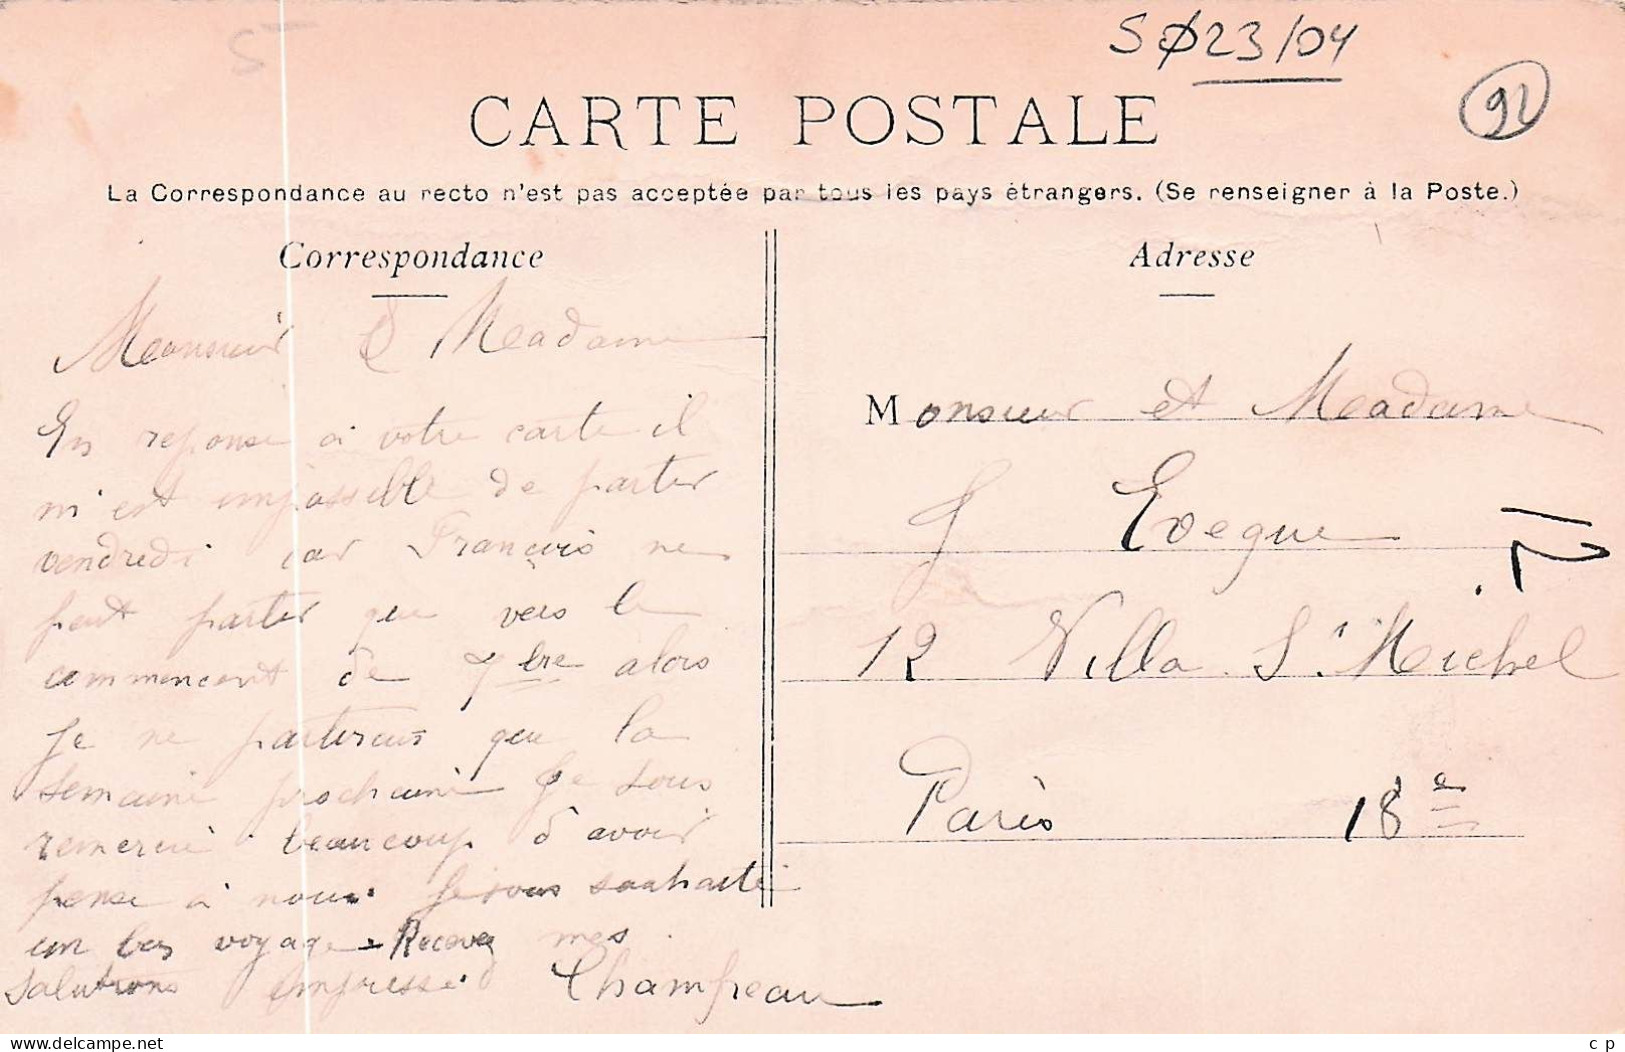 SØ23/04
92
CARTE POSTALE
La Correspondance au recto n'est pas acceptée par tous les pays étrangers. (Se renseigner à la Poste.)
Correspondance
Monsieur & Madame
En reponse a votre carte il
m'est impossible de parter
vendredi car François ne
peut parter que vers le
commencent de 7bre alors
Je ne parterais que la
semaine prochaine Je vous
remercie beaucoup d'avoir
pense a nous. Je vous souhaite
un bon voyage. Recevez mes
salutations empressé. Champeau
Adresse
Monsieur et Madame
J Evegue
12 Villa St Michel
Paris 18e
12
delcampe.net
c p